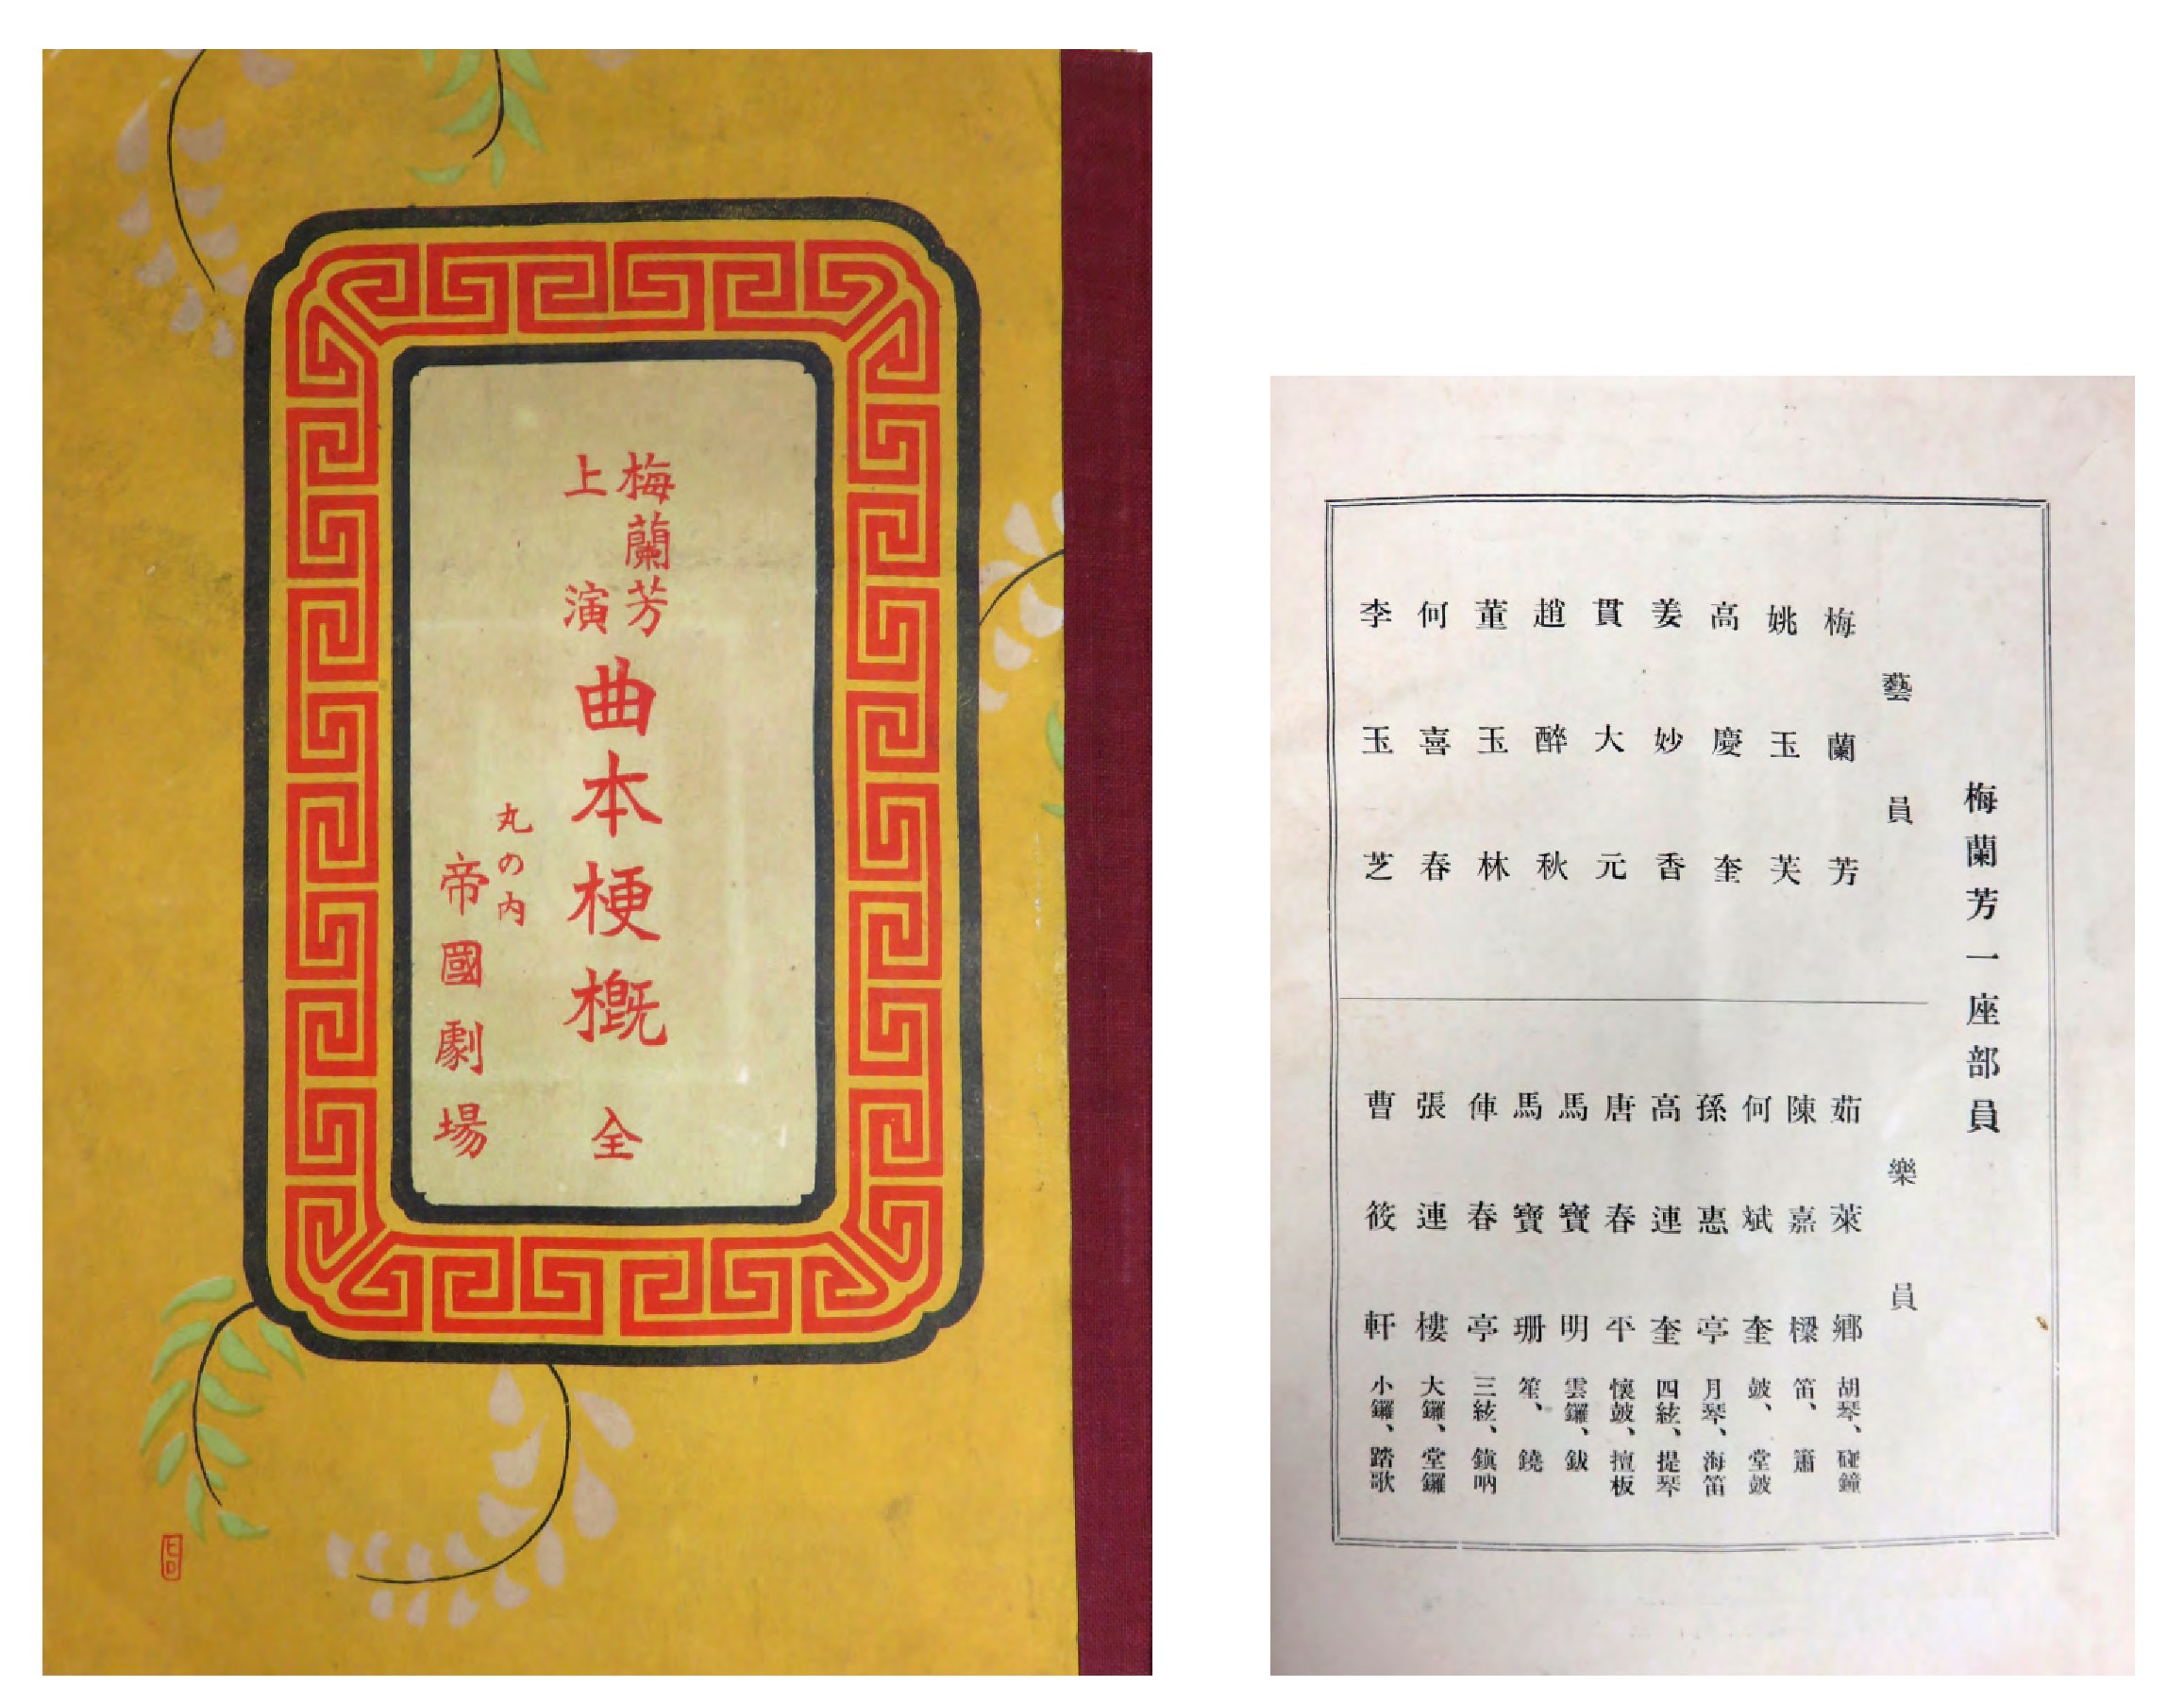 梅蘭芳
上演
曲本梗概 全
丸の内
帝國劇場
梅蘭芳一座部員
藝員
梅蘭芳
姚玉芙
高慶奎
姜妙香
貫大元
趙醉秋
董玉林
何喜春
李玉芝
樂員
茹萊鄉 胡琴、碰鐘
陳嘉樑 笛、簫
何斌奎 皷、堂皷
孫惠亭 月琴、海笛
高連奎 四絃、提琴
唐春平 懷皷、擅板
馬寶明 雲鑼、鈸
馬寶珊 笙、鐃
俥春亭 三絃、鎖吶
張連樓 大鑼、堂鑼
曹筱軒 小鑼、踏歌